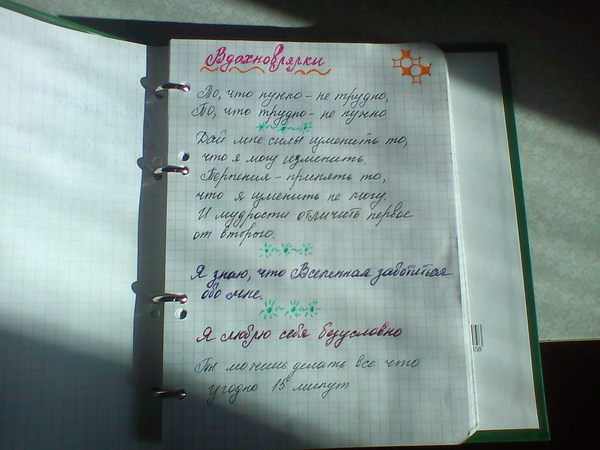 Вдохновлярки
То, что нужно - не трудно,
То, что трудно - не нужно
Дай мне силы изменить то,
что я могу изменить.
Терпения - принять то,
что я изменить не могу.
И мудрости отличить первое
от второго.
Я знаю, что Вселенная заботиться
обо мне.
Я люблю себя безусловно
Ты можешь делать все что
угодно 15 минут